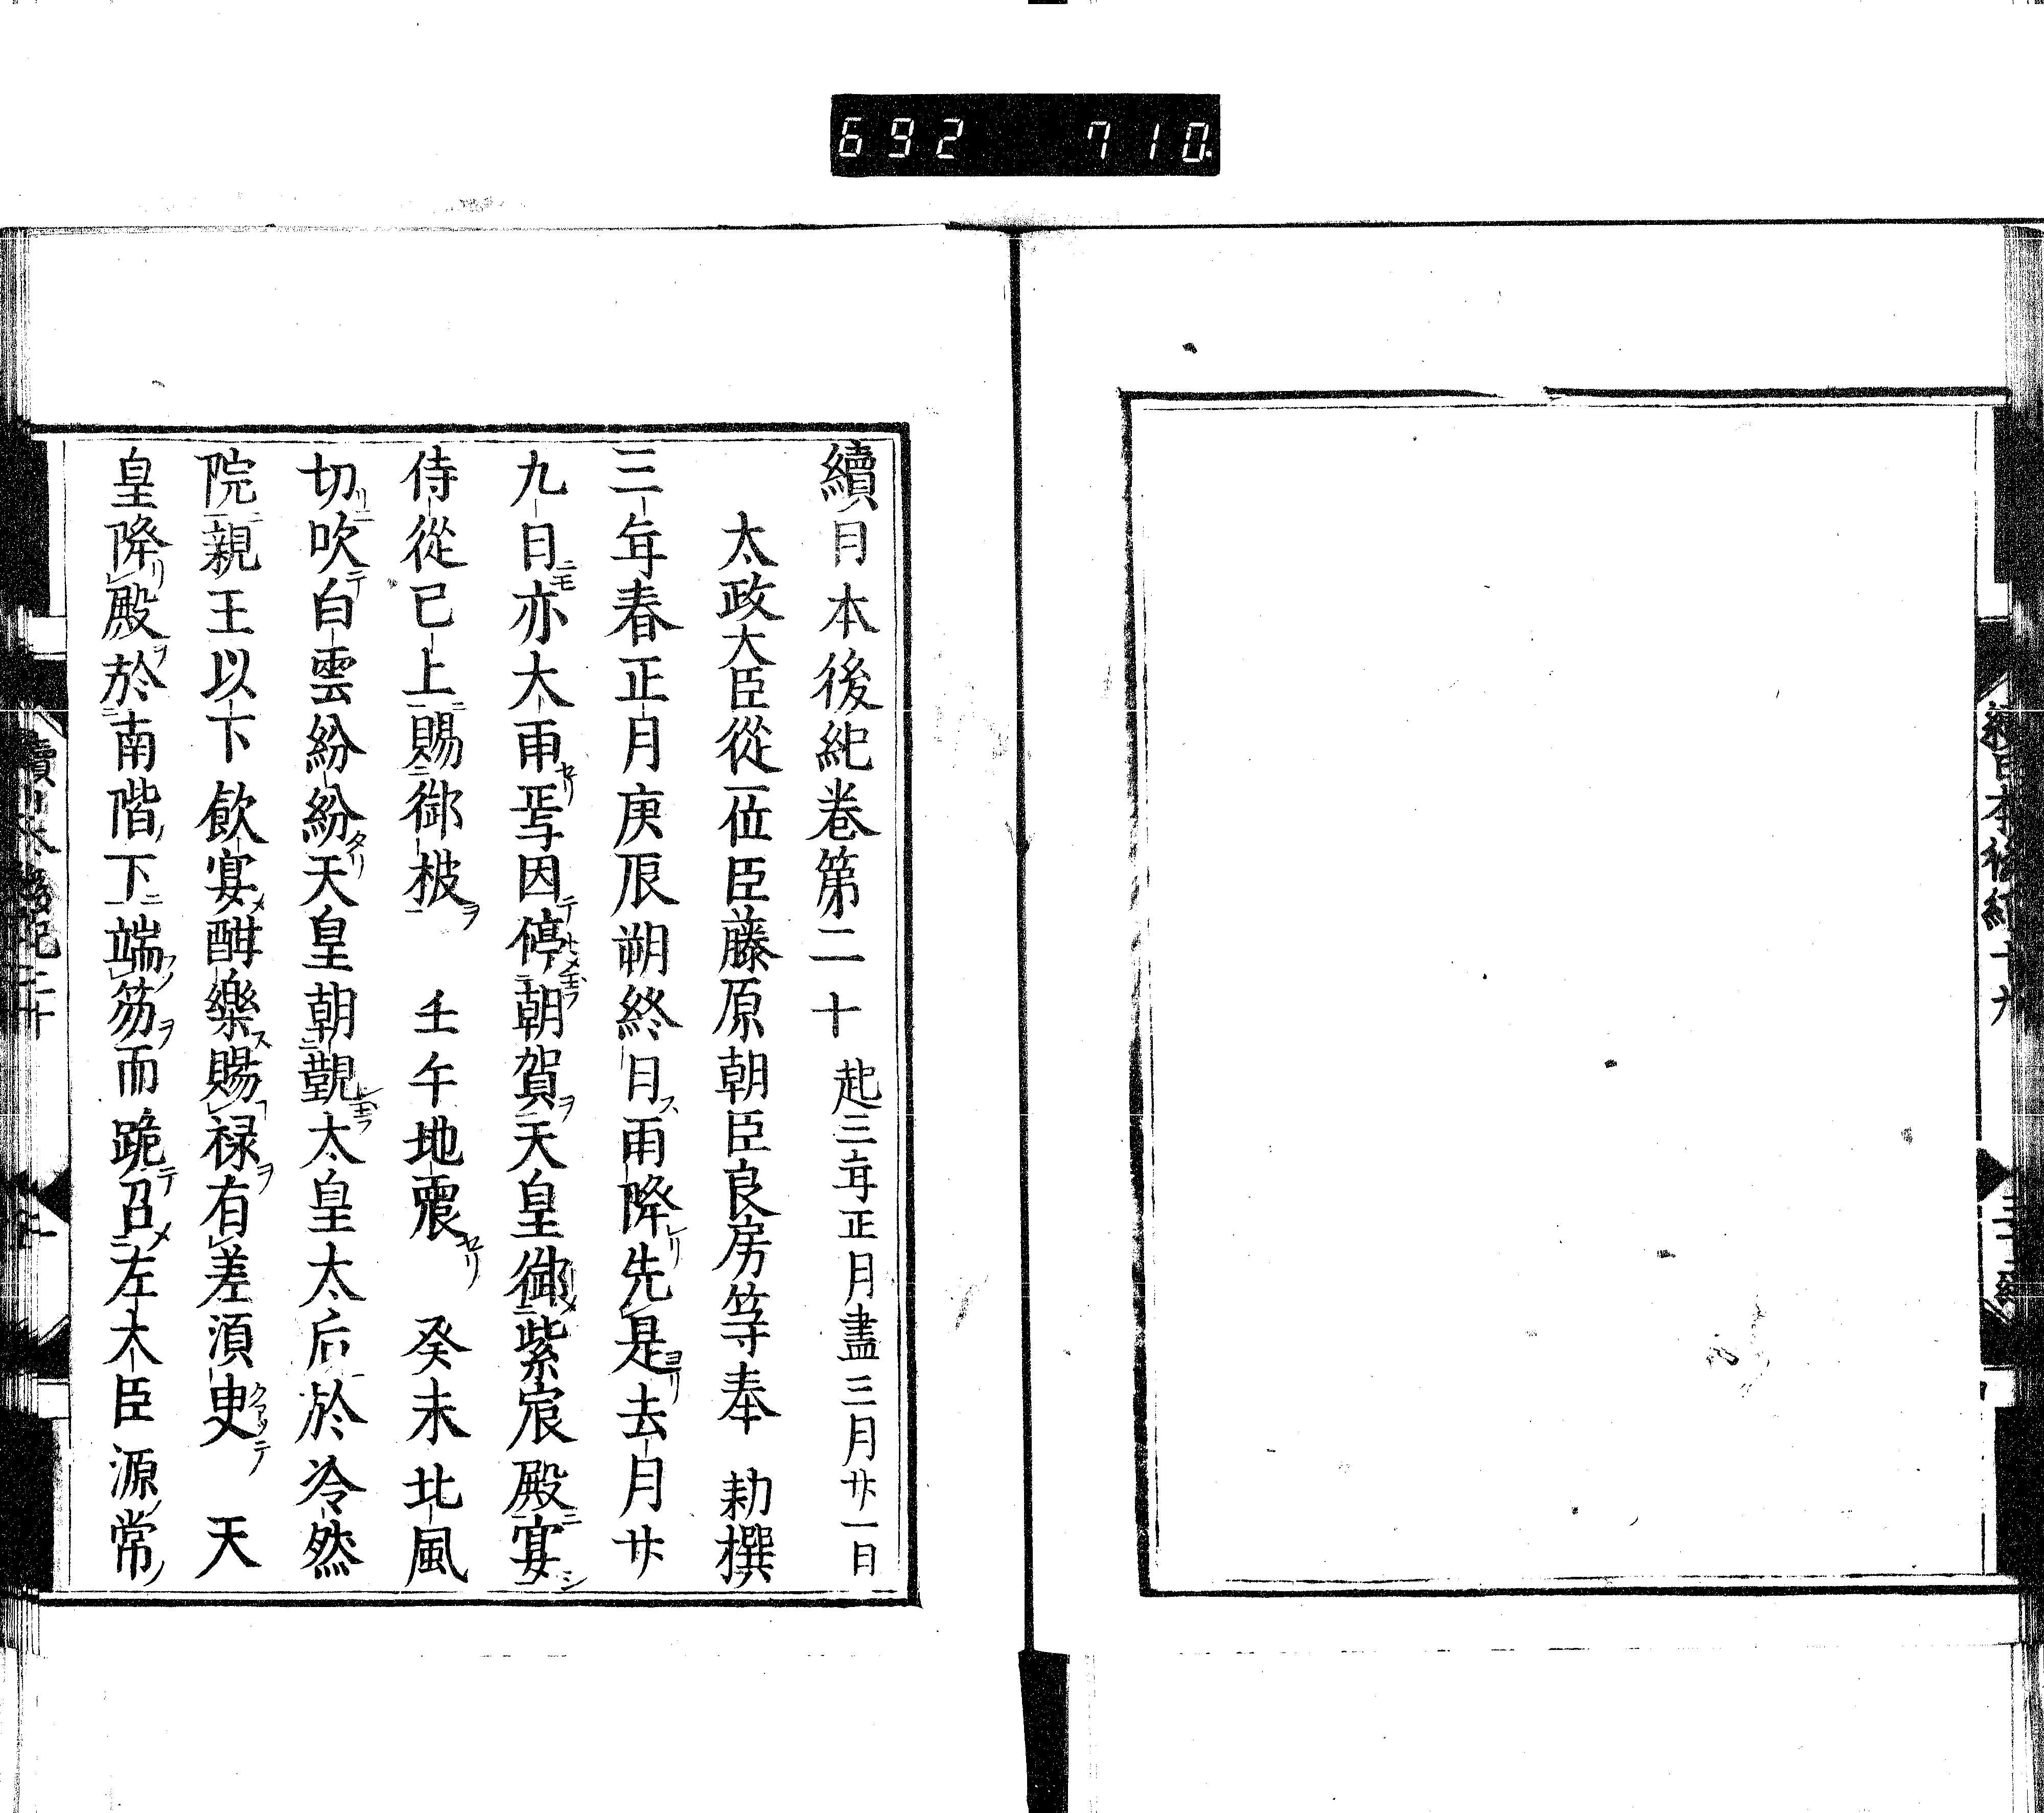 692 710.
續日本後紀卷第二十 起三年正月盡三月廿一日
太政大臣從一位臣藤原朝臣良房等奉 勅撰
三年春正月庚辰朔終日雨降先是去月廿
九日亦大雨焉因停朝賀天皇御紫宸殿宴
侍從已上賜御被 壬午地震 癸未北風
切吹白雲紛紛天皇朝覲太皇太后於冷然
院親王以下飲宴酣樂賜祿有差須臾 天
皇降殿於南階下端笏而跪召左大臣源常